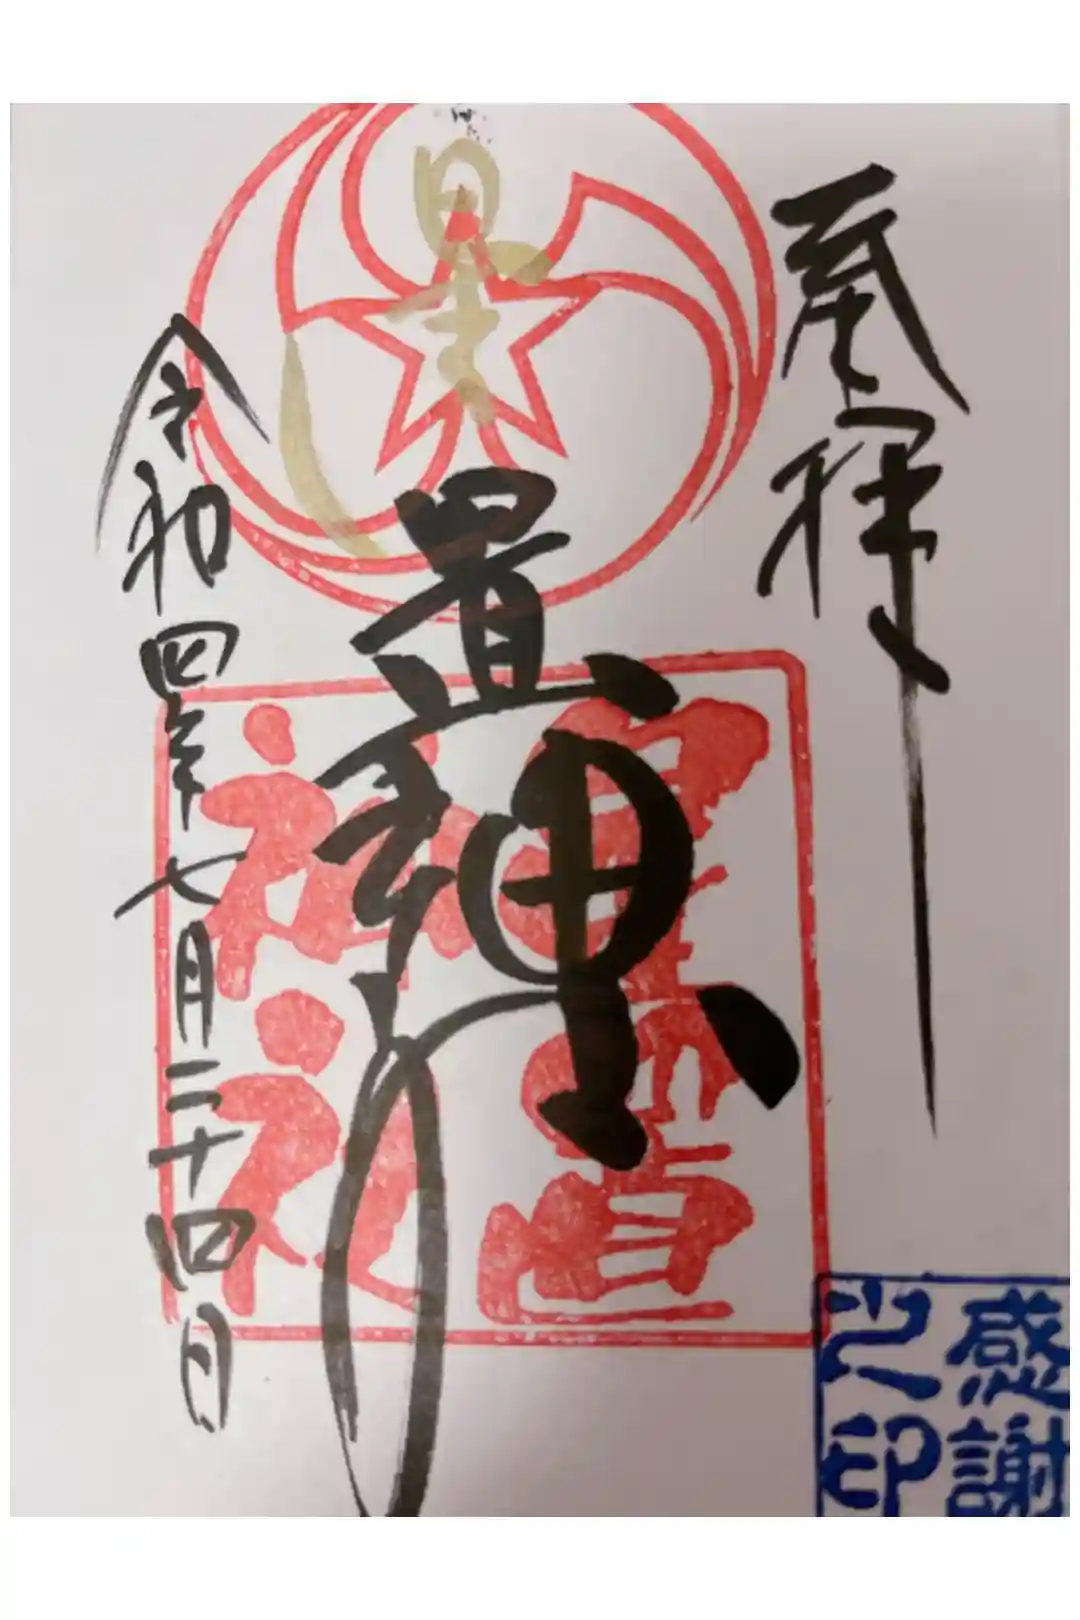 奉拝
星置神社
星置
神社
令和四年七月二十四日
感謝
之印